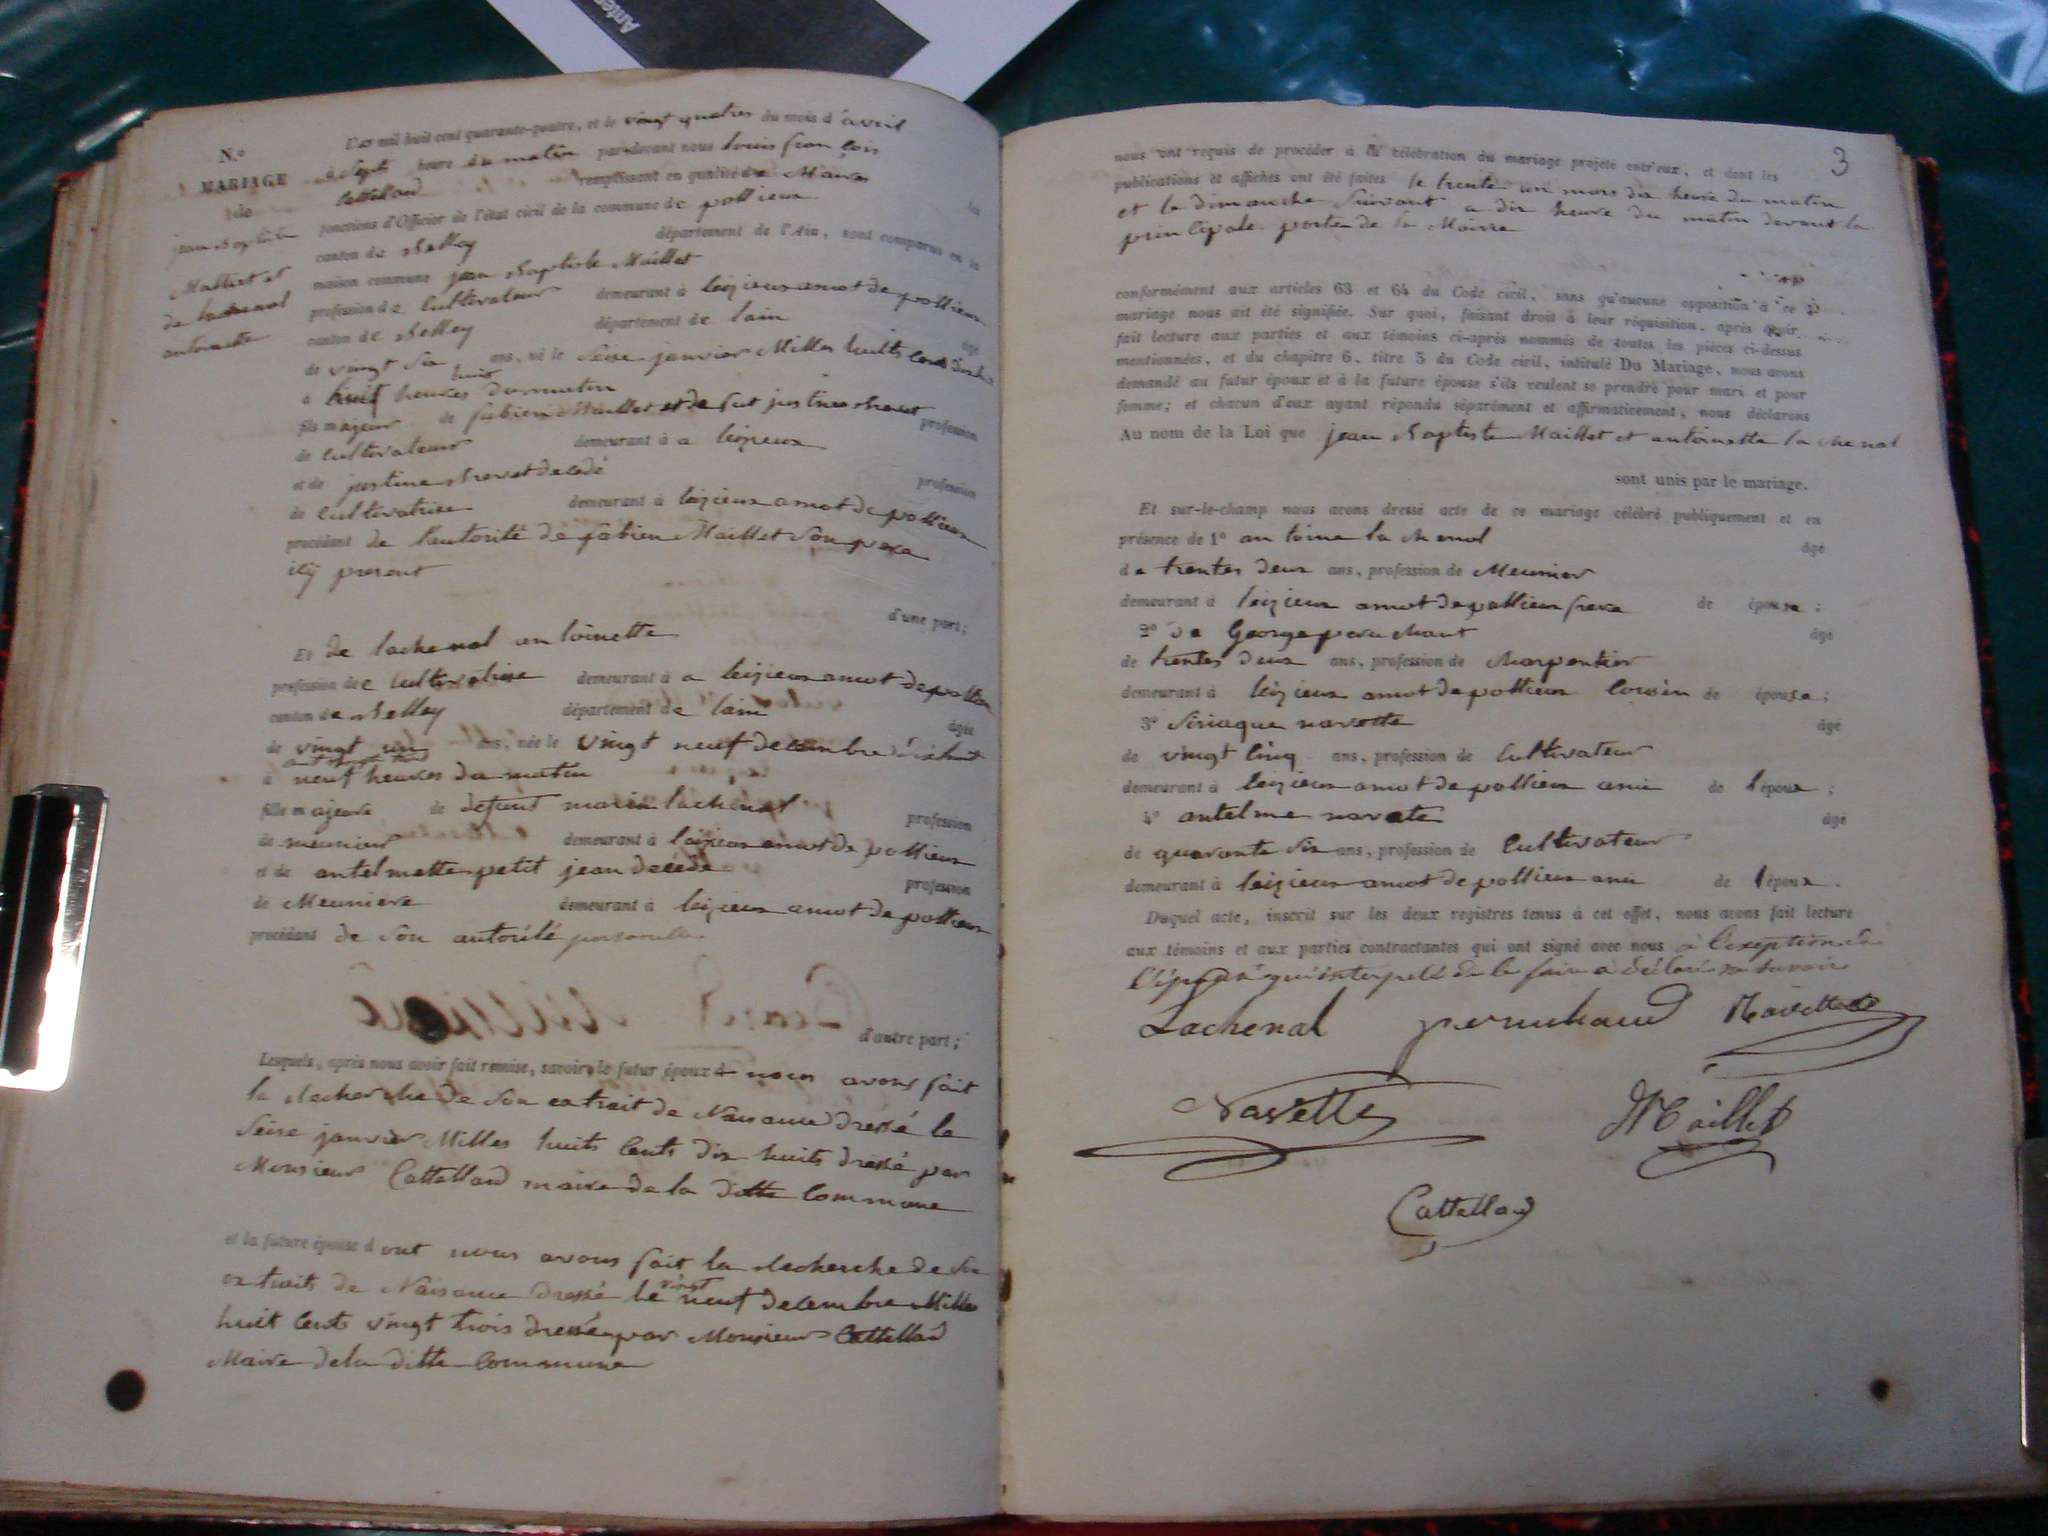 Anten
N.º
MARIAGE
de
jean baptiste
Maillet et
de lachenal
antoinette
L'an mil huit cent quarante-quatre, et le vingt quatres du mois d'avril
à Septs heure du matin par-devant nous louis françois
Cattelland remplissant en qualité de Maire les
fonctions d'Officier de l'état civil de la commune de pollieux
canton de Belley département de l'Ain, sont comparus en la
maison commune jean Baptiste Maillet
profession de Cultivateur demeurant à leizieux amot de pollieux
canton de Belley département de lain âgé
de vingt six ans, né le Seise janvier Milles huits cents dix huit
à huit heures du matin
fils majeur de fabien Maillet et de fut justine chevet profession
de Cultivateur demeurant à a leizieux
et de justine chevet decedé profession
de Cultivatrise demeurant à leizieux amot de pollieux
procédant de l'autorité de fabien Maillet Son pere
icy present
d'une part;
Et de lachenal antoinette
profession de Cultivatrise demeurant à a leizieux amot de pollieux
canton de Belley département de lain âgée
de vingt un ans, née le vingt neuf decembre dixhuit
cent vingt trois
à neuf heures du matin
fille majeure de defunt marin lachenal profession
de meunier demeurant à leizieux amot de pollieux
et de antelmette petit jean décédé profession
de Meuniere demeurant à leizieux amot de pollieux
procédant de Son autorité personelle
d'autre part;
Lesquels, après nous avoir fait remise, savoir: le futur époux d nous avons fait
la Recherche de Son extrait de Naisance dressé le
Seise janvier Milles huits Cents dix huits dressé par
Monsieur Cattelland maire de la ditte Commune
et la future épouse dont nous avons fait la Recherche de Son
extraits de Naisance dressé le vingt neuf decembre Milles
huit Cent vingt trois dressé par Monsieur Cattelland
Maire de la ditte Commune
3
nous ont requis de procéder à la célébration du mariage projeté entr'eux, et dont les
publications et affiches ont été faites le trente un mars dix heure du matin
et le dimanche Suivant a dix heure du matin devant la
principale porte de la Mairie
conformément aux articles 63 et 64 du Code civil, sans qu'aucune opposition à ce
mariage nous ait été signifiée. Sur quoi, faisant droit à leur réquisition, après avoir
fait lecture aux parties et aux témoins ci-après nommés de toutes les pièces ci-dessus
mentionnées, et du chapitre 6, titre 5 du Code civil, intitulé Du Mariage, nous avons
demandé au futur époux et à la future épouse s'ils veulent se prendre pour mari et pour
femme; et chacun d'eux ayant répondu séparément et affirmativement, nous déclarons
Au nom de la Loi que jean Baptiste Maillet et antoinette lachenal
sont unis par le mariage.
Et sur-le-champ nous avons dressé acte de ce mariage célébré publiquement et en
présence de 1º antoine lachenal âgé
de trentes deux ans, profession de Meunier
demeurant à leizieux amot de pollieux frere de épouse;
2º de George peruchaut âgé
de trentes deux ans, profession de charpentier
demeurant à leizieux amot de pollieux Cousin de épouse;
3º Siriaque navette âgé
de vingt cinq ans, profession de Cultivateur
demeurant à leizieux amot de pollieux amie de l'époux;
4º antelme navete âgé
de quarante six ans, profession de Cultivateur
demeurant à leizieux amot de pollieux ami de l'époux.
Duquel acte, inscrit sur les deux registres tenus à cet effet, nous avons fait lecture
aux témoins et aux parties contractantes qui ont signé avec nous à l'exeption de
l'épouse qui interpelé de le faire a déclaré ne Savoir
Lachenal peruchaud Navette
Navette Maillet
Cattelland